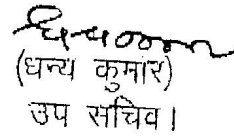 (धन्य कुमार)
उप सचिव।